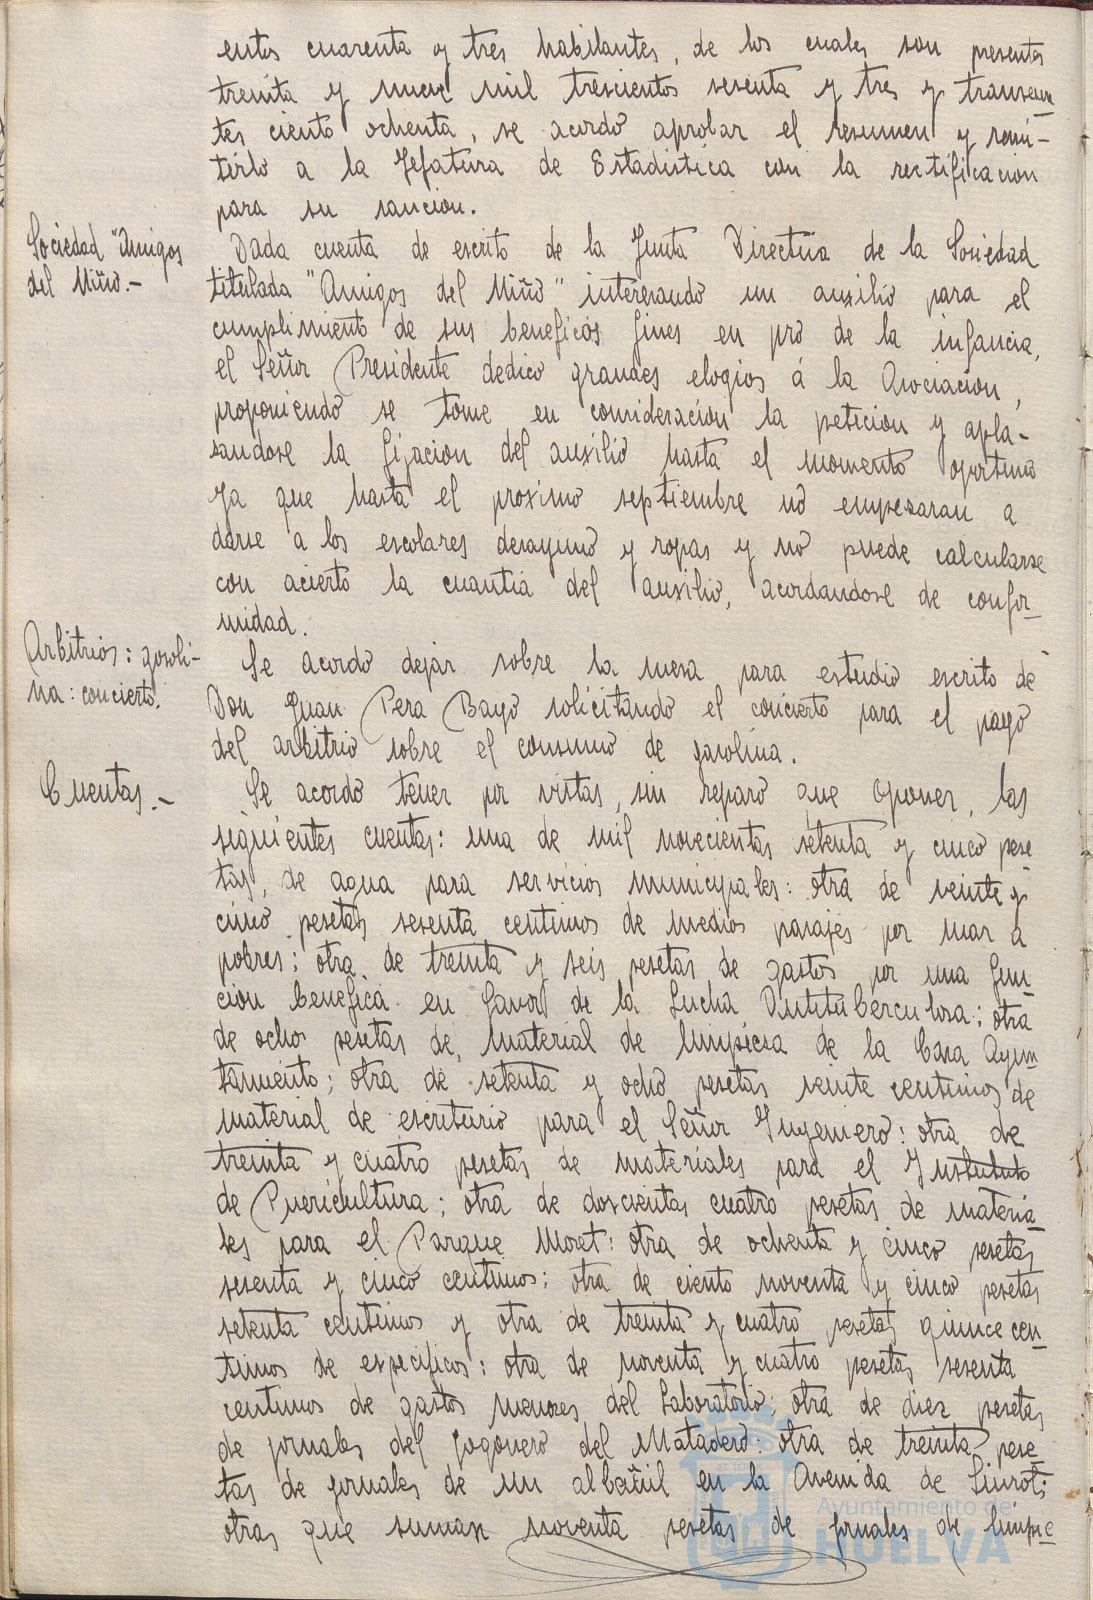 entos cuarenta y tres habitantes, de los cuales son presentes
treinta y nueve mil trescientos sesenta y tres y transeun
tes ciento ochenta, se acordó aprobar el resumen y remi-
tirlo a la Jefatura de Estadística con la rectificacion
para su sancion.
Sociedad "Amigos
del Niño.-
Dada cuenta de escrito de la Junta Directiva de la Sociedad
titulada "Amigos del Niño" interesando un auxilio para el
cumplimiento de sus beneficos fines en pro de la infancia,
el Señor Presidente dedicó grandes elogios á la Asociacion,
proponiendo se tome en consideracion la peticion y apla-
sandose la fijacion del auxilio hasta el momento oportuno
ya que hasta el proximo septiembre no empezaran a
darse a los escolares desayuno y ropas y no puede calcularse
con acierto la cuantia del auxilio, acordandose de confor-
midad.
Arbitrios: gasoli-
na: concierto.
Se acordó dejar sobre la mesa para estudio escrito de
Don Juan Pera Bayo solicitando el concierto para el pago
del arbitrio sobre el consumo de gasolina.
Cuentas.-
Se acordó tener por vistas, sin reparo que oponer, las
siguientes cuentas: una de mil novecientas setenta y cinco pese
tas, de agua para servicios municipales: otra de veinte y
cinco pesetas sesenta centimos de medios pasajes por mar a
pobres: otra de treinta y seis pesetas de gastos por una fun-
cion benefica en favor de la Lucha Antituberculosa; otra
de ocho pesetas de material de limpieza de la Casa Ayun
tamiento; otra de setenta y ocho pesetas veinte centimos de
material de escritorio para el Señor Ingeniero: otra de
treinta y cuatro pesetas de materiales para el Instituto
de Puericultura; otra de doscientas cuatro pesetas de materia-
les para el Parque Moret: otra de ochenta y cinco pesetas
sesenta y cinco centimos: otra de ciento noventa y cinco pesetas
setenta centimos y otra de treinta y cuatro pesetas quince cen-
timos de especificos: otra de noventa y cuatro pesetas sesenta
centimos de gastos menores del Laboratorio; otra de diez pesetas
de jornales del fogonero del Matadero: otra de treinta pese-
tas de jornales de un albañil en la Avenida de Siurot;
otras que suman noventa pesetas de jornales de limpie-
Ayuntamiento de
HUELVA